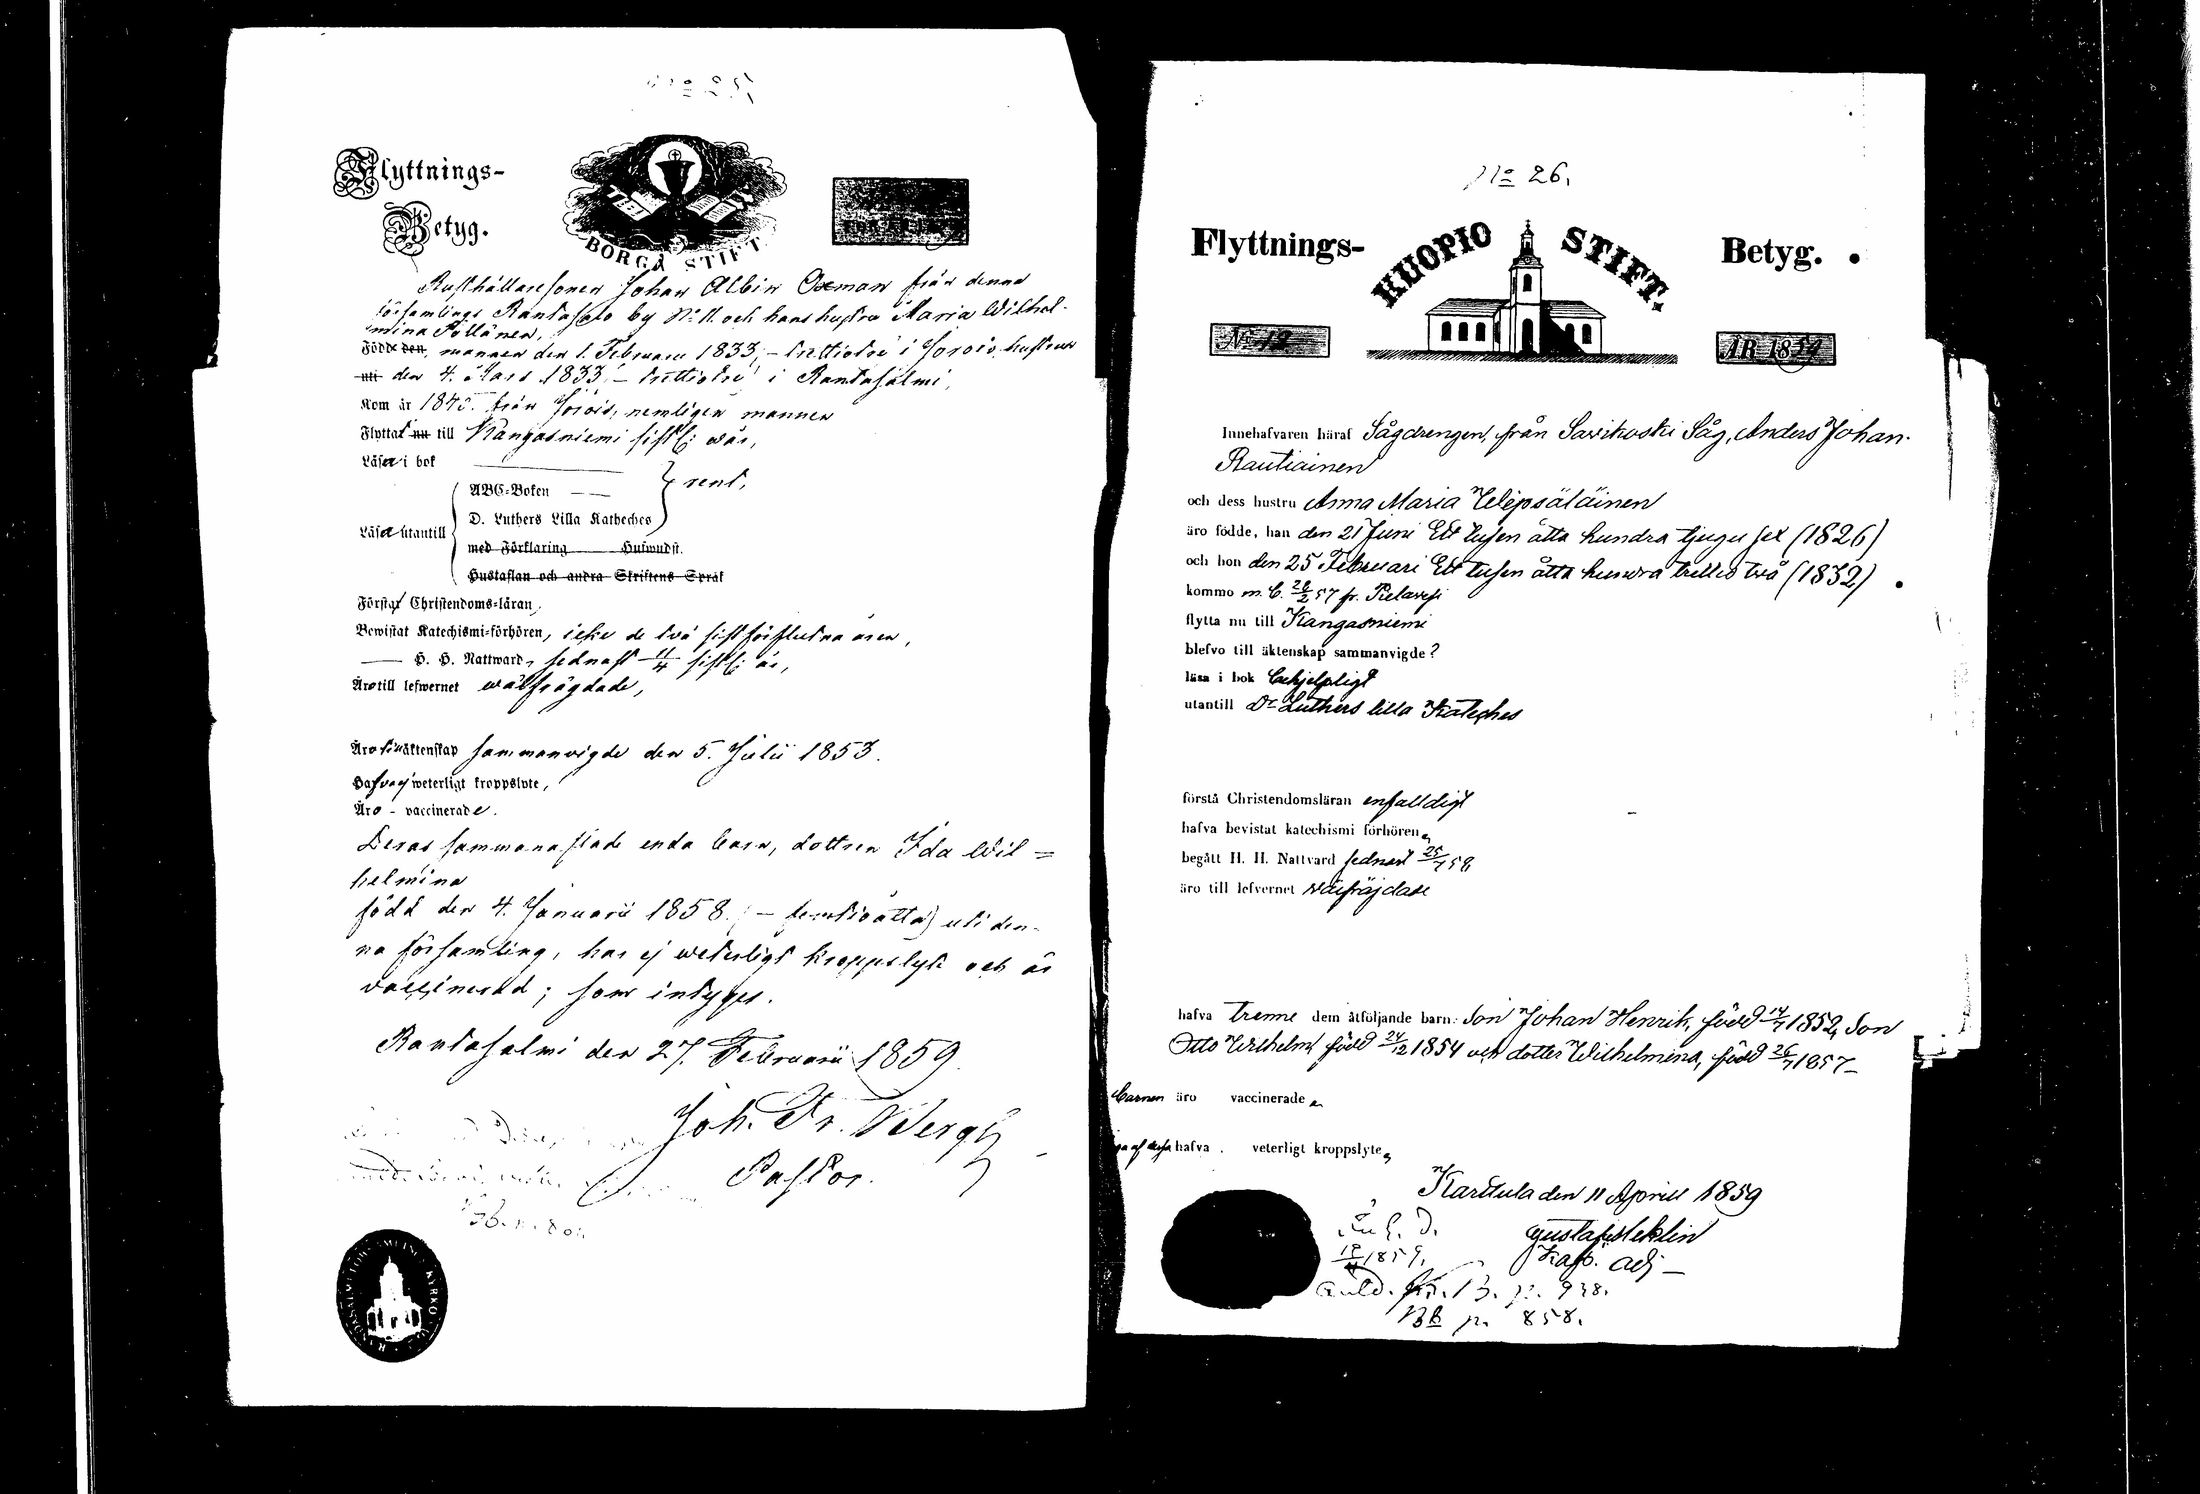 Flyttnings-
Betyg.
BORGÅ STIFT
Rusthållaresonen Johan Albin Oxman från denna
församlings Rantasalo by N:o 11. och hans hustru Maria Wilhel-
mina Pöllänen,
Född den, mannen den 1. Februarii 1833, – trettiotre i Jorois, hustrun
den 4. Mars 1833, – trettiotre i Rantasalmi,
Kom år från Jorois, nemligen mannen
Flyttat nu till Kangasniemi sistl: wår,
Läsa i bok
ABC-Boken
} rent,
D. Luthers Lilla Katheches
Läsa utantill
med Förklaring Hufwudst.
Hustaflan och andra Skriftens Språk
Förstå Christendoms-läran,
Bewistat Katechismi-förhören, icke de två sistförflutna åren,
H. H. Nattward, sednast 11/4 sistl: år,
Äro till lefwernet wälfrägdade,
Äro äktenskap sammanvigde den 5. Julii 1853.
Hafva ej weterligt kroppslyte,
Äro - vaccinerade.
Deras sammanaflade enda barn, dottren Ida Wil=
helmina
född den 4. Januarii 1858. (– femtioåtta) uti den-
na församling, har ej weterligt kroppslyte och är
vaccinerad; som intygas.
Rantasalmi den 27. Februarii 1859.
Joh. Fr. Bergh
Pastor.
No 26.
Flyttnings-
KUOPIO STIFT.
Betyg.
No 12
ÅR 1859
Innehafvaren häraf Sågdrengen, från Sawikoski Såg, Anders Johan
Rautiainen
och dess hustru Anna Maria Wepsäläinen
äro födde, han den 21 Juni Ett tusen åtta hundra tjugu sex (1826)
och hon den 25 Februari Ett tusen åtta hundra trettio två (1832)
kommo m. b. 26/2 57 fr. Pielavesi
flytta nu till Kangasniemi
blefvo till äktenskap sammanvigde?
läsa i bok behjelpligt
utantill Dr Luthers lilla Kateches
förstå Christendomsläran enfaldigt
hafva bevistat katechismi förhören
begått H. H. Nattvard sednast 25/7 58
äro till lefvernet wälfräjdade
hafva trenne dem åtföljande barn: Son Johan Henrik, född 14/7 1852, Son
Otto Wilhelm, född 24/12 1854 och dotter Wilhelmina, född 26/7 1857
barnen äro vaccinerade
hafva veterligt kroppslyte
Karttula den 11 Aprill 1859
Gustaf Steklin
Kap. adj
1859.
p. 938.
BB p. 858.